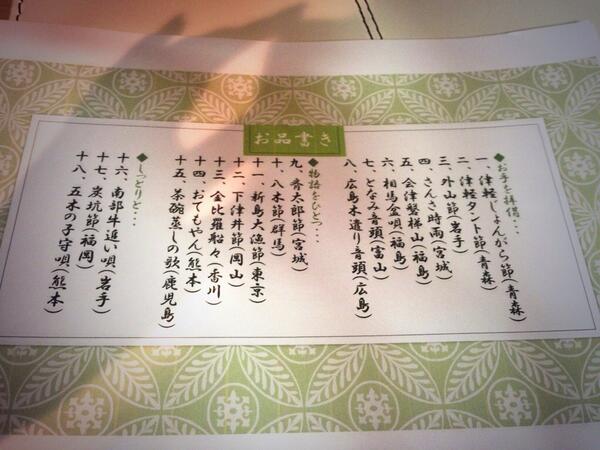 お品書き
◆お手を拝借・・・
一、津軽じょんがら節(青森)
二、津軽タント節(青森)
三、外山節(岩手)
四、さんさ時雨(宮城)
五、会津磐梯山(福島)
六、相馬盆唄(福島)
七、となみ音頭(富山)
八、広島木遣り音頭(広島)
◆物語をひとつ・・・
九、斉太郎節(宮城)
十、八木節(群馬)
十一、新島大漁節(東京)
十二、下津井節(岡山)
十三、金比羅船々(香川)
十四、おてもやん(熊本)
十五、茶碗蒸しの歌(鹿児島)
◆しっとりと・・・
十六、南部牛追い唄(岩手)
十七、炭坑節(福岡)
十八、五木の子守唄(熊本)